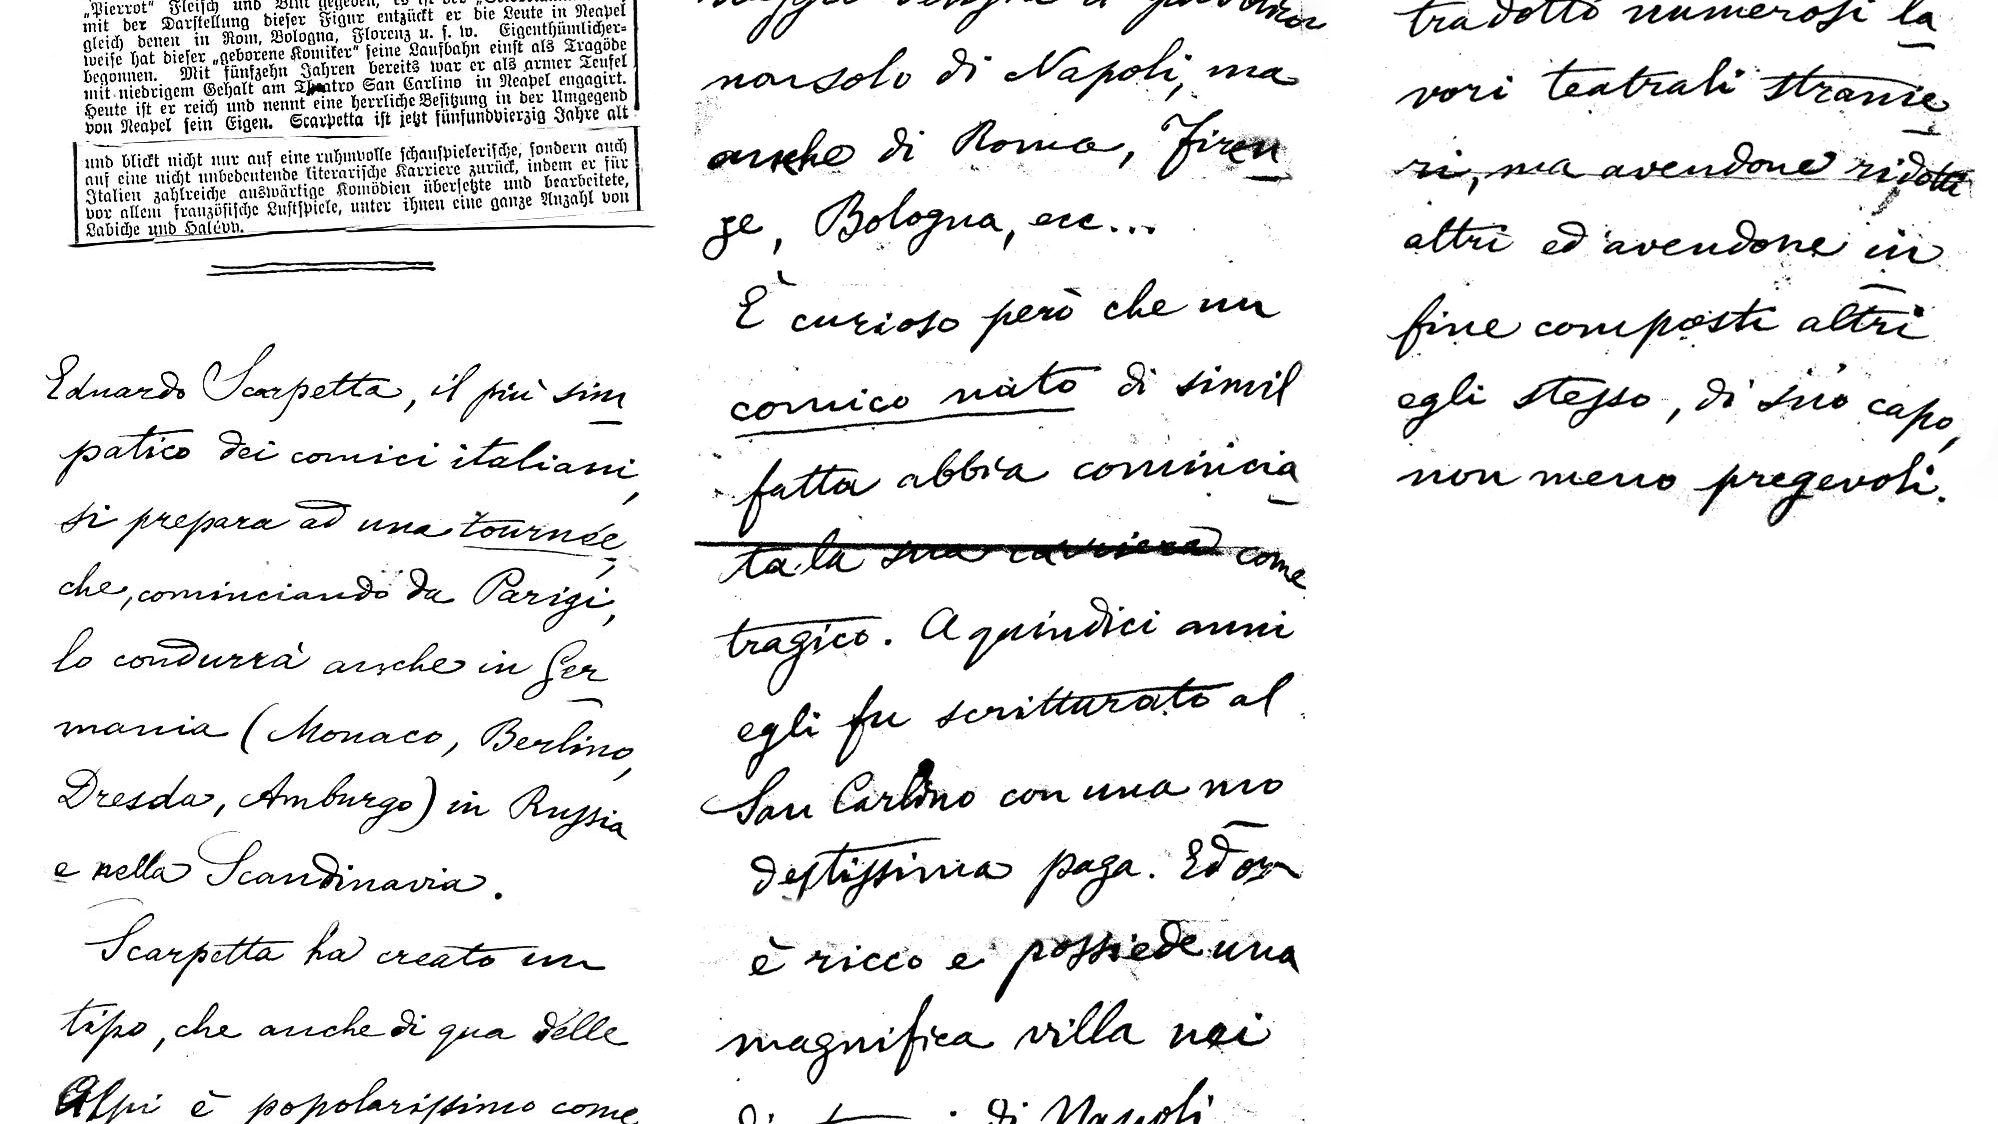 "Pierrot" Fleisch und Blut gegeben, es ist der
mit der Darstellung dieser Figur entzückt er die Leute in Neapel
gleich denen in Rom, Bologna, Florenz u. s. w. Eigenthümlicher-
weise hat dieser „geborene Komiker" seine Laufbahn einst als Tragöde
begonnen. Mit fünfzehn Jahren bereits war er als armer Teufel
mit niedrigem Gehalt am Theatro San Carlino in Neapel engagirt.
Heute ist er reich und nennt eine herrliche Besitzung in der Umgegend
von Neapel sein Eigen. Scarpetta ist jetzt fünfundvierzig Jahre alt
und blickt nicht nur auf eine ruhmvolle schauspielerische, sondern auch
auf eine nicht unbedeutende literarische Karriere zurück, indem er für
Italien zahlreiche auswärtige Komödien übersetzte und bearbeitete,
vor allem französische Lustspiele, unter ihnen eine ganze Anzahl von
Labiche und Halévy.
Eduardo Scarpetta, il più sim
patico dei comici italiani,
si prepara ad una tournée,
che, cominciando da Parigi,
lo condurrà anche in Ger
mania (Monaco, Berlino,
Dresda, Amburgo) in Russia
e nella Scandinavia.
Scarpetta ha creato un
tipo, che anche di qua delle
Alpi è popolarissimo come
non solo di Napoli, ma
anche di Roma, Firen
ze, Bologna, ecc...
È curioso però che un
comico nato di simil
fatta abbia comincia
ta la sua carriera come
tragico. A quindici anni
egli fu scritturato al
San Carlino con una mo
destissima paga. Ed or
è ricco e possiede una
magnifica villa nei
di Napoli
tradotto numerosi la
vori teatrali stranie
ri, ma avendone ridotti
altri ed avendone in
fine composti altri
egli stesso, di suo capo,
non meno pregevoli.